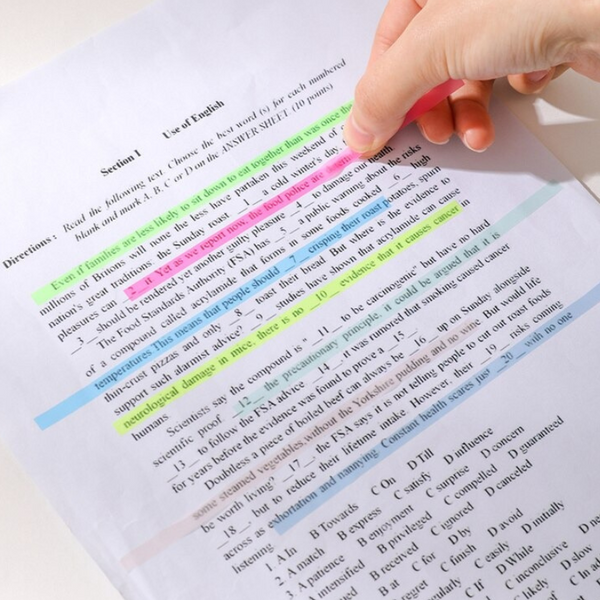 Section I Use of English
Directions: Read the following text. Choose the best word (s) for each numbered
blank and mark A, B, C or D on the ANSWER SHEET. (10 points)
Even if families are less likely to sit down to eat together than was once the
millions of Britons will none the less have partaken this weekend of
nation's great traditions: the Sunday roast. _1_ a cold winter's day,
pleasures can _2_ it. Yet as we report now, the food police are
_3_ should be rendered yet another guilty pleasure _4_ to damage our health
The Food Standards Authority (FSA) has _5_ a public warning about the risks
of a compound called acrylamide that forms in some foods cooked _6_ high
temperatures. This means that people should _7_ crisping their roast potatoes, spurn
thin-crust pizzas and only _8_ toast their bread. But where is the evidence to
support such alarmist advice? _9_ studies have shown that acrylamide can cause
neurological damage in mice, there is no _10_ evidence that it causes cancer in
humans
Scientists say the compound is " _11_ to be carcinogenic" but have no hard
scientific proof. _12_ the precautionary principle, it could be argued that it is
_13_ to follow the FSA advice. _14_, it was rumored that smoking caused cancer
for years before the evidence was found to prove a _15_.
Doubtless a piece of boiled beef can always be _16_ up on Sunday alongside
some steamed vegetables without the Yorkshire pudding and no wine. But would life
be worth living? _17_, the FSA says it is not telling people to cut out roast foods
_18_, but to reduce their lifetime intake. However, their _19_ risks coming
across as exhortation and nannying. Constant health scares just _20_ with no one
listening.
1. A In B Towards C On D Till
2. A match B express C satisfy D influence
3. A patience B enjoyment C surprise D concern
A intensified B privileged C compelled D guaranteed
B received C ignored D canceled
B at C for D by
C finish D avoid
regret C easily D initially
C If D While
C inconclusive
C likely D slow